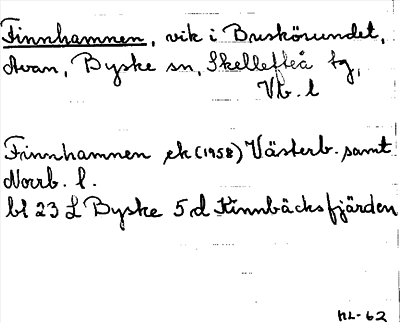 Finnhamnen, vik i Buskörundet,
Avan, Byske sn, Skellefteå tg,
Vb. l
Finnhamnen ek (1958) Västerb. samt
Norrb. l.
bl 23 L Byske 5 d Kinnbäcksfjärden
NL-62